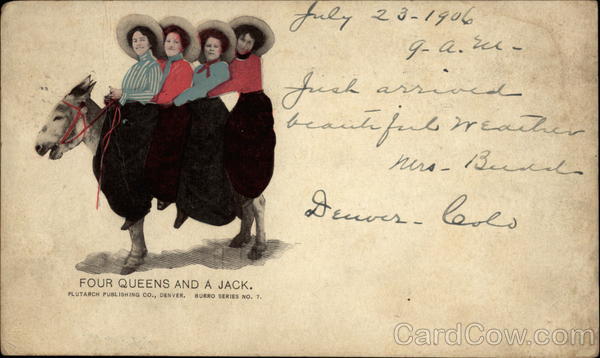 July 23-1906
9-A.M-
Just arrived
beautiful Weather
Mrs- Budd
Denver- Colo
FOUR QUEENS AND A JACK.
PLUTARCH PUBLISHING CO., DENVER. BURRO SERIES NO. 7.
CardCow.com